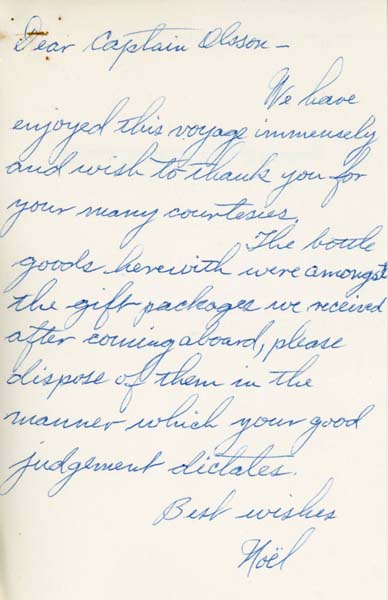 Dear Captain Olsson -
We have
enjoyed this voyage immensely
and wish to thank you for
your many courtesies.
The bottle
goods herewith were amongst
the gift packages we received
after coming aboard, please
dispose of them in the
manner which your good
judgement dictates.
Best wishes
Noël